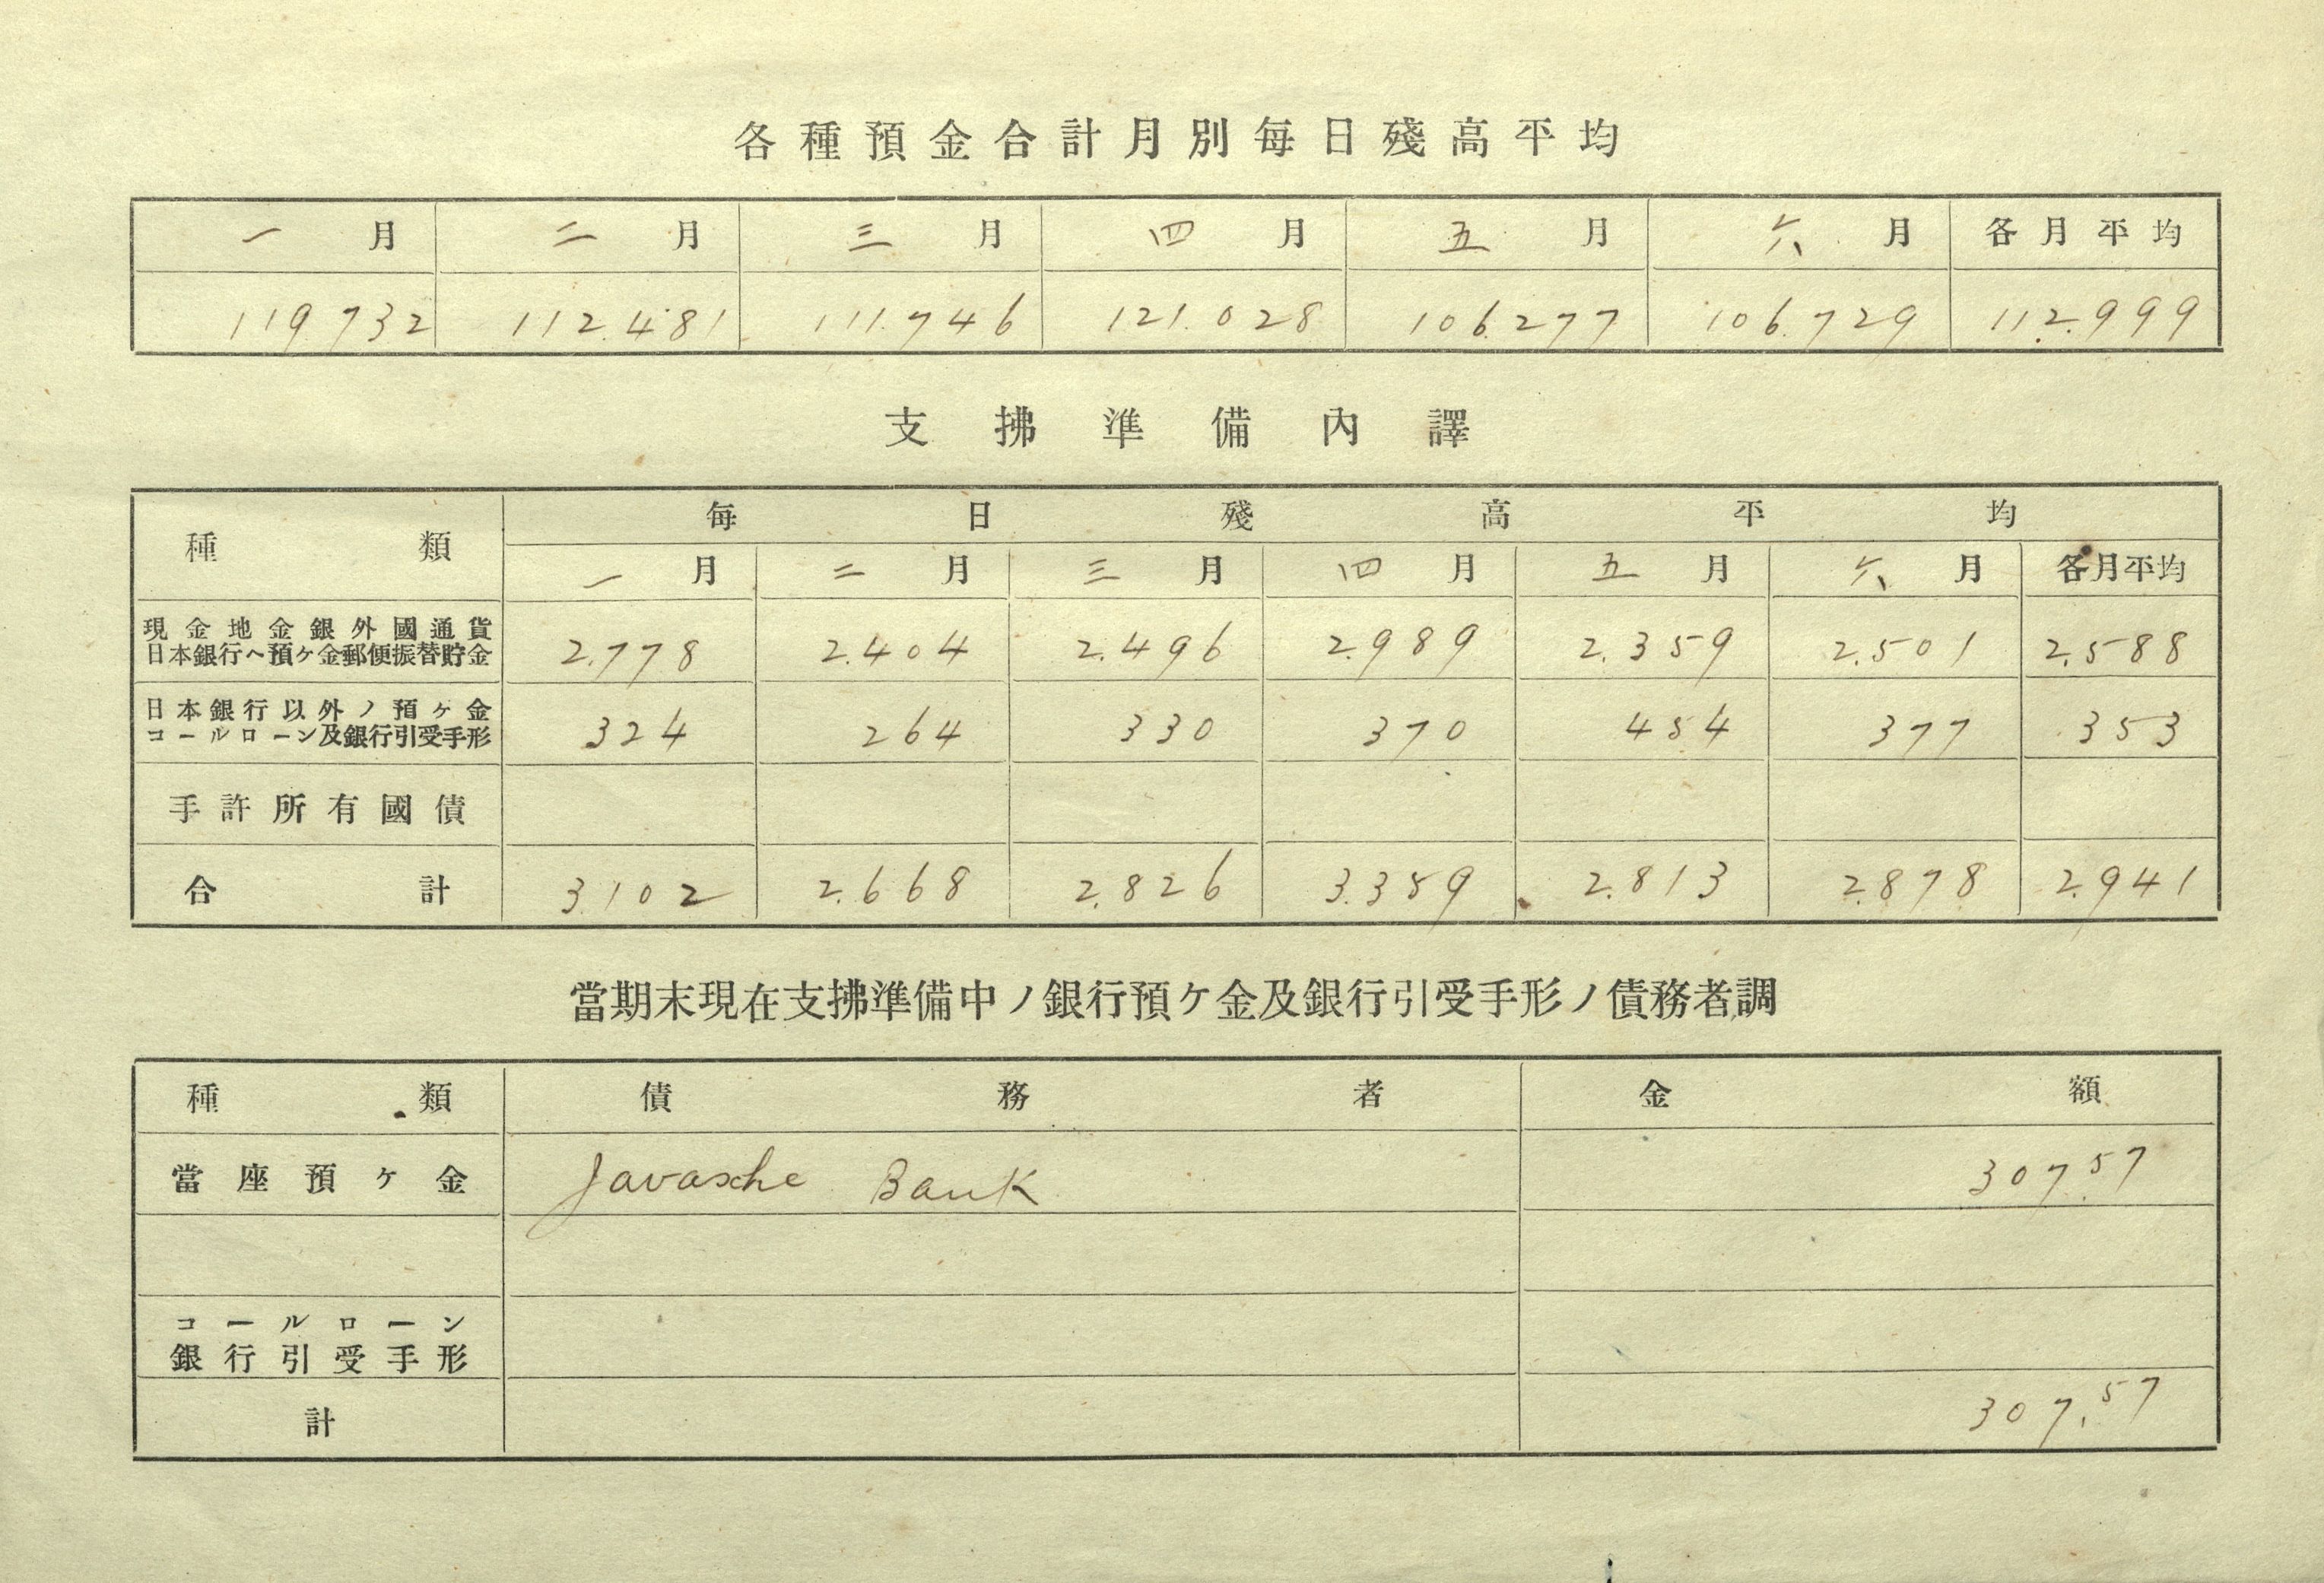 各種預金合計月別每日殘高平均
一月 二月 三月 四月 五月 六月 各月平均
119.732 112.481 111.746 121.028 106.277 106.729 112.999
支拂準備內譯
種類 每日殘高平均
一月 二月 三月 四月 五月 六月 各月平均
現金地金銀外國通貨
日本銀行へ預ヶ金郵便振替貯金 2.778 2.404 2.496 2.989 2.359 2.501 2.588
日本銀行以外ノ預ヶ金
コールローン及銀行引受手形 324 264 330 370 454 377 353
手許所有國債
合計 3.102 2.668 2.826 3.359 2.813 2.878 2.941
當期末現在支拂準備中ノ銀行預ケ金及銀行引受手形ノ債務者調
種類 債務者 金額
當座預ヶ金 Javasche Bank 307.57
コールローン
銀行引受手形
計 307.57